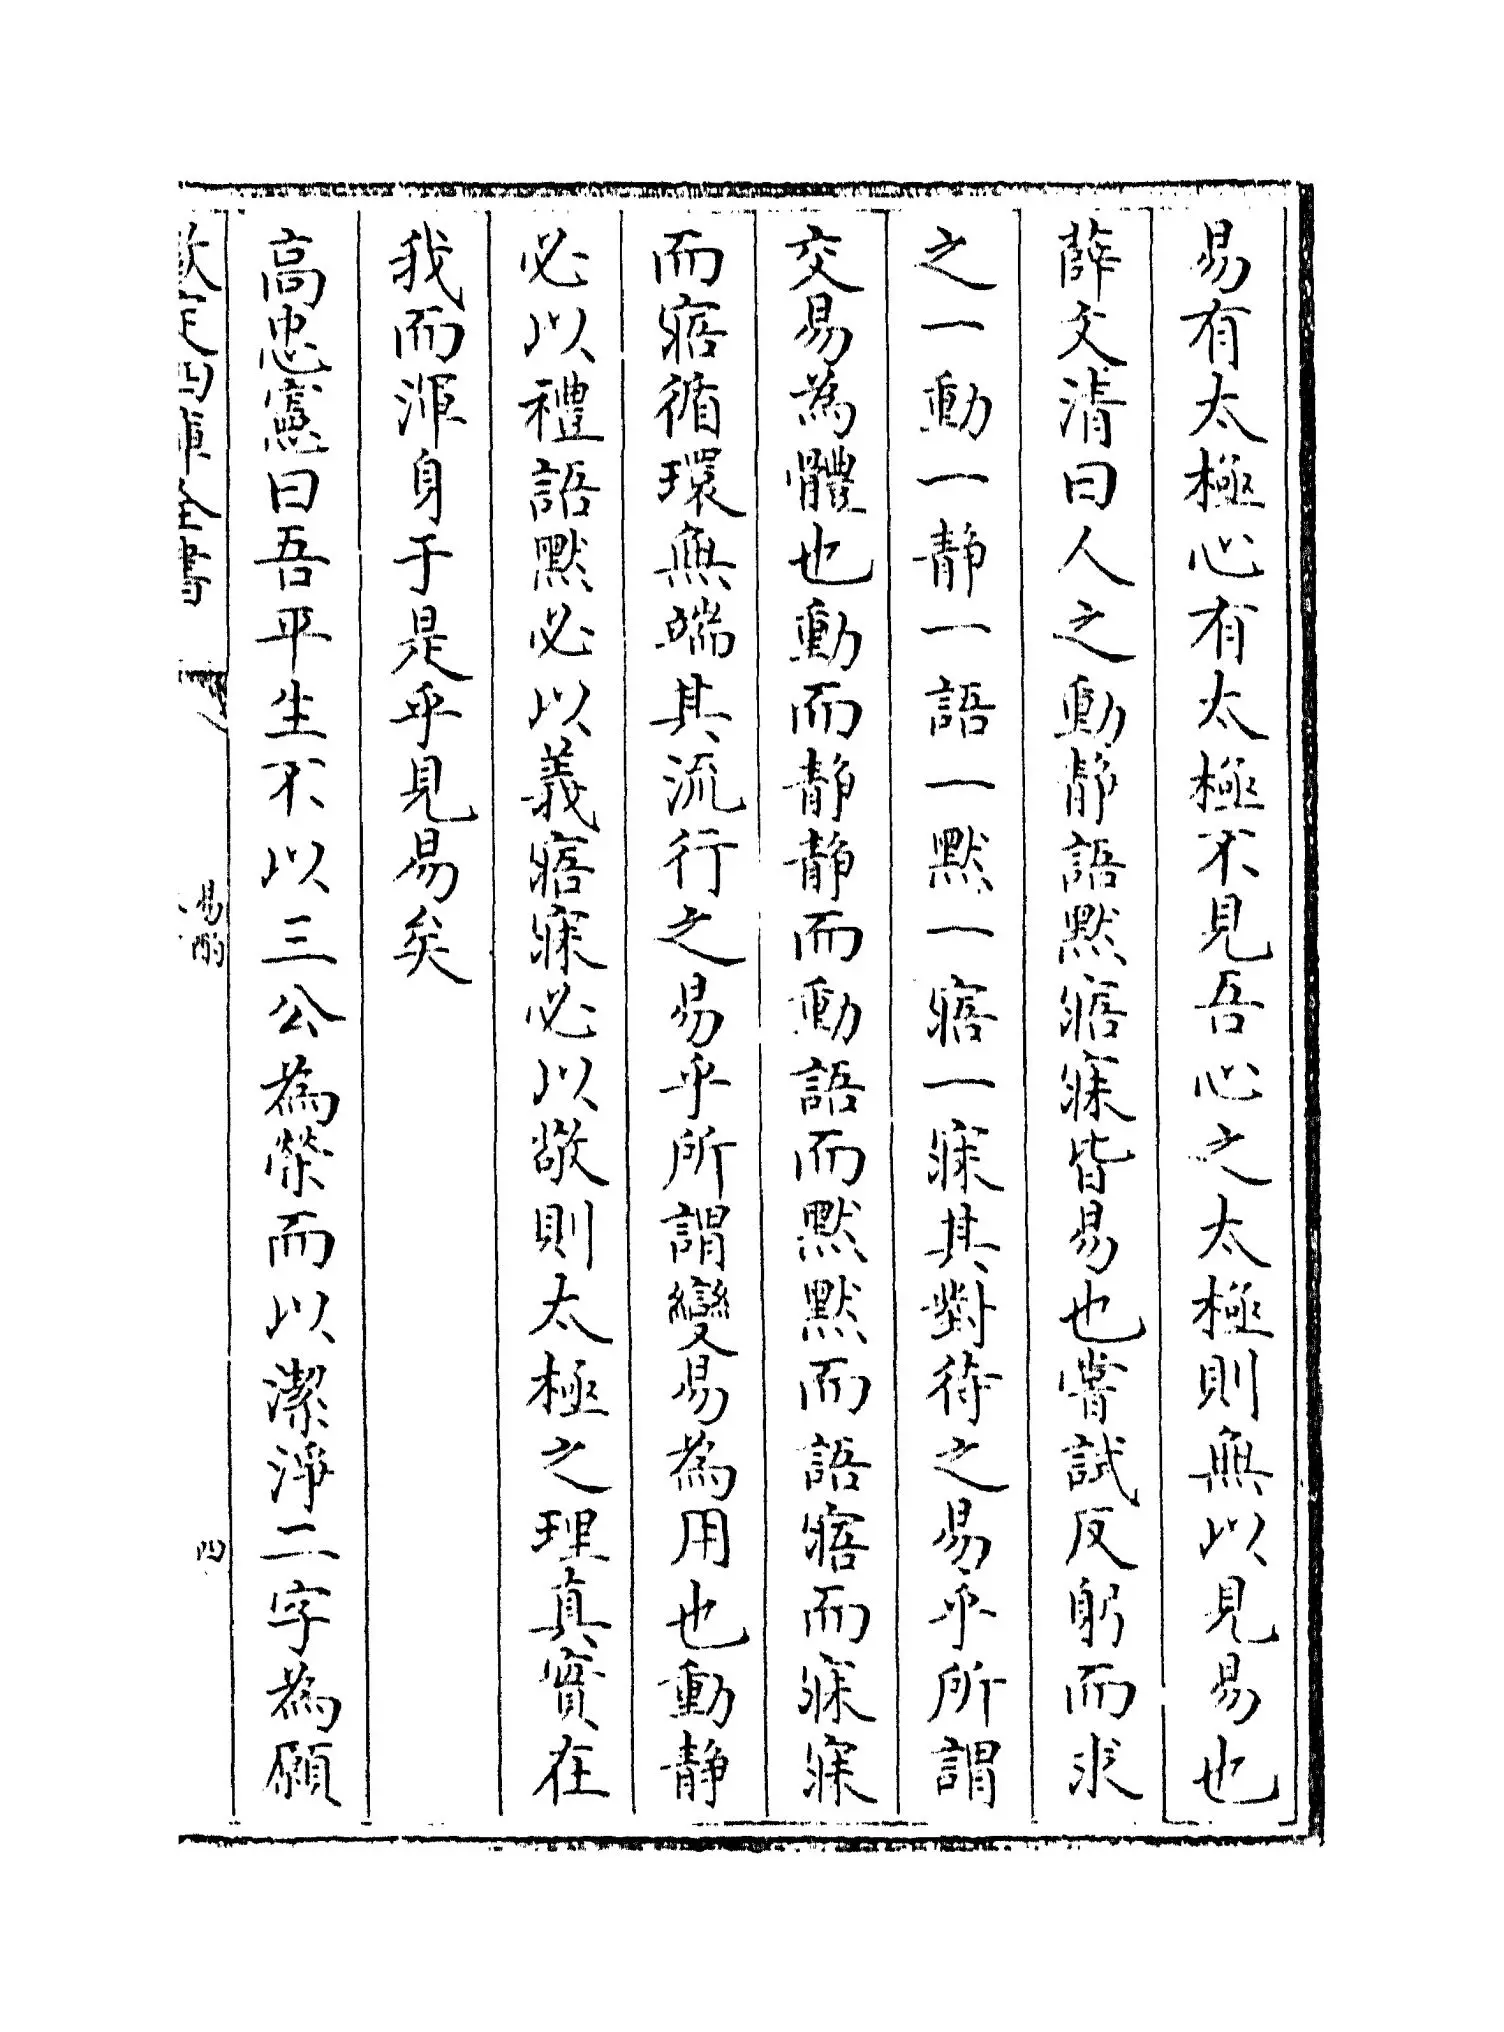 易有太極心有太極不見吾心之太極則無以見易也
薛文清曰人之動静語黙寤寐皆易也嘗試反躬而求
之一動一静一語一黙一寤一寐其對待之易乎所謂
交易為體也動而静静而動語而黙黙而語寤而寐寐
而寤循環無端其流行之易乎所謂變易為用也動静
必以禮語黙必以義寤寐必以敬則太極之理真實在
我而渾身于是乎見易矣
高忠憲曰吾平生不以三公為榮而以潔淨二字為願
欽定四庫全書
易酌
四